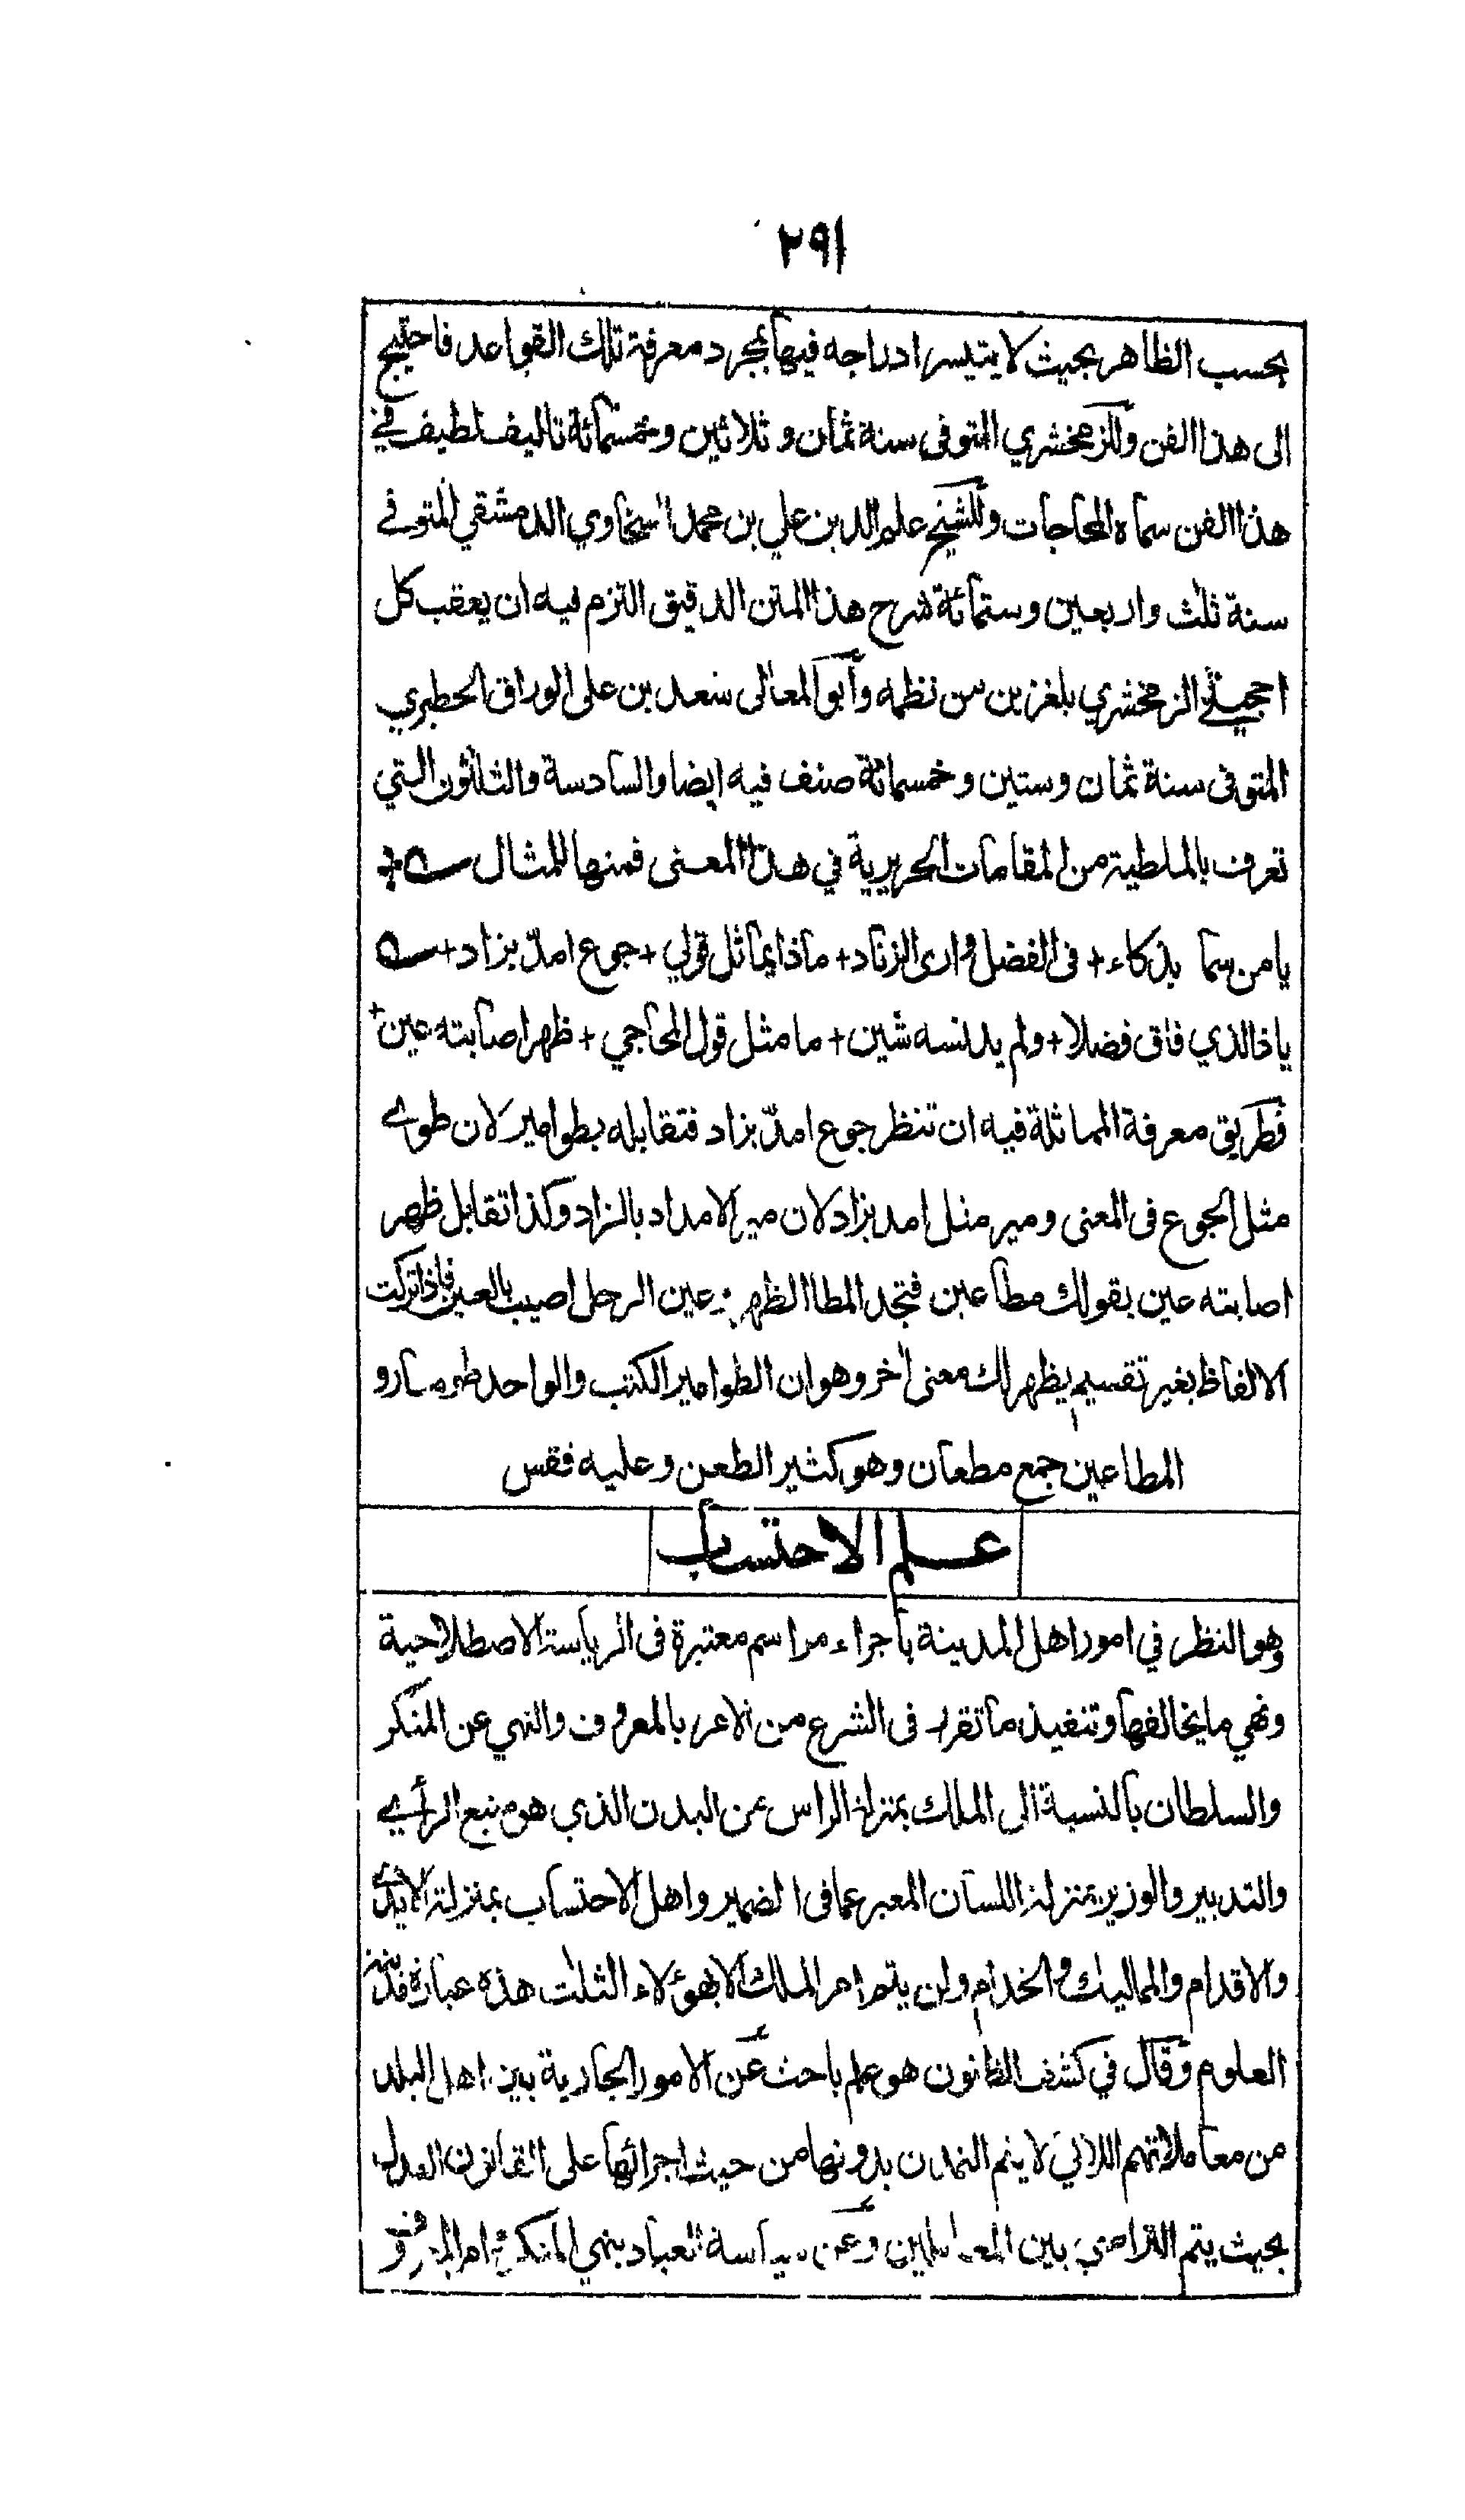 ٢٩١
بحسب الظاهر بحيث لا يتيسر ادراجه فيها بمجرد معرفة تلك القواعد فاحتيج
الى هذا الفن وللزمخشري المتوفى سنة ثمان وثلاثين وخمسمائة تاليف لطيف في
هذا الفن سماه المحاجات وللشيخ علم الدين علي بن محمد السخاوي الدمشقي المتوفى
سنة ثلث واربعين وستمائة شرح هذا المتن الدقيق التزم فيه ان يعقب كل
احجيتي الزمخشري بلغزين من نظمه وأبو المعالى سعد بن على الوراق الحطيري
المتوفى سنة ثمان وستين وخمسمائة صنف فيه ايضا والسادسة والثلاثون التي
تعرف بالملطية من المقامات الحريرية في هذا المعنى فمنها للمثال
يا من سما بذكاء + فى الفضل وارى الزناد + ماذا يماثل قولي + جوع امدّ بزاد +
يا ذا الذي فاق فضلا + ولم يدنسه شين + ما مثل قول المحاجي + ظهر اصابته عين +
فطريق معرفة المماثلة فيه ان تنظر جوع امدّ بزاد فتقابله بطوامير لان طوى
مثل الجوع فى المعنى ومير مثل امد بزاد لان مير الامداد بالزاد وكذا تقابل ظهر
اصابته عين بقولك مطا عين فتجد المطا الظهر وعين الرجل اصيب بالعين فاذا تركت
الالفاظ بغير تقسيم يظهر لك معنى أخر وهو ان الطوامير الكتب والواحد طومار و
المطاعين جمع مطعان وهو كثير الطعن وعليه فقس
علم الاحتساب
وهو النظر في امور اهل المدينة باجراء مراسم معتبرة فى الرياسة الاصطلاحية
ونهي ما يخالفها وتنفيذ ما تقرر فى الشرع من الامر بالمعروف والنهي عن المنكر
والسلطان بالنسبة الى الملك بمنزلة الراس من البدن الذي هو منبع الرأي
والتدبير والوزير بمنزلة اللسان المعبر عما فى الضمير واهل الاحتساب بمنزلة الايدي
والاقدام والمماليك والخدام ولن يتم امر الملك الا بهؤلاء الثلث هذه عبارة مدينة
العلوم وقال في كشف الظنون هو علم باحث عن الامور الجارية بين اهل البلد
من معاملاتهم اللاتي لا يتم التمدن بدونها من حيث اجرائها على القانون العدل
بحيث يتم التراضي بين المعاملين وعن سياسة العباد بنهي المنكر وامر المعروف